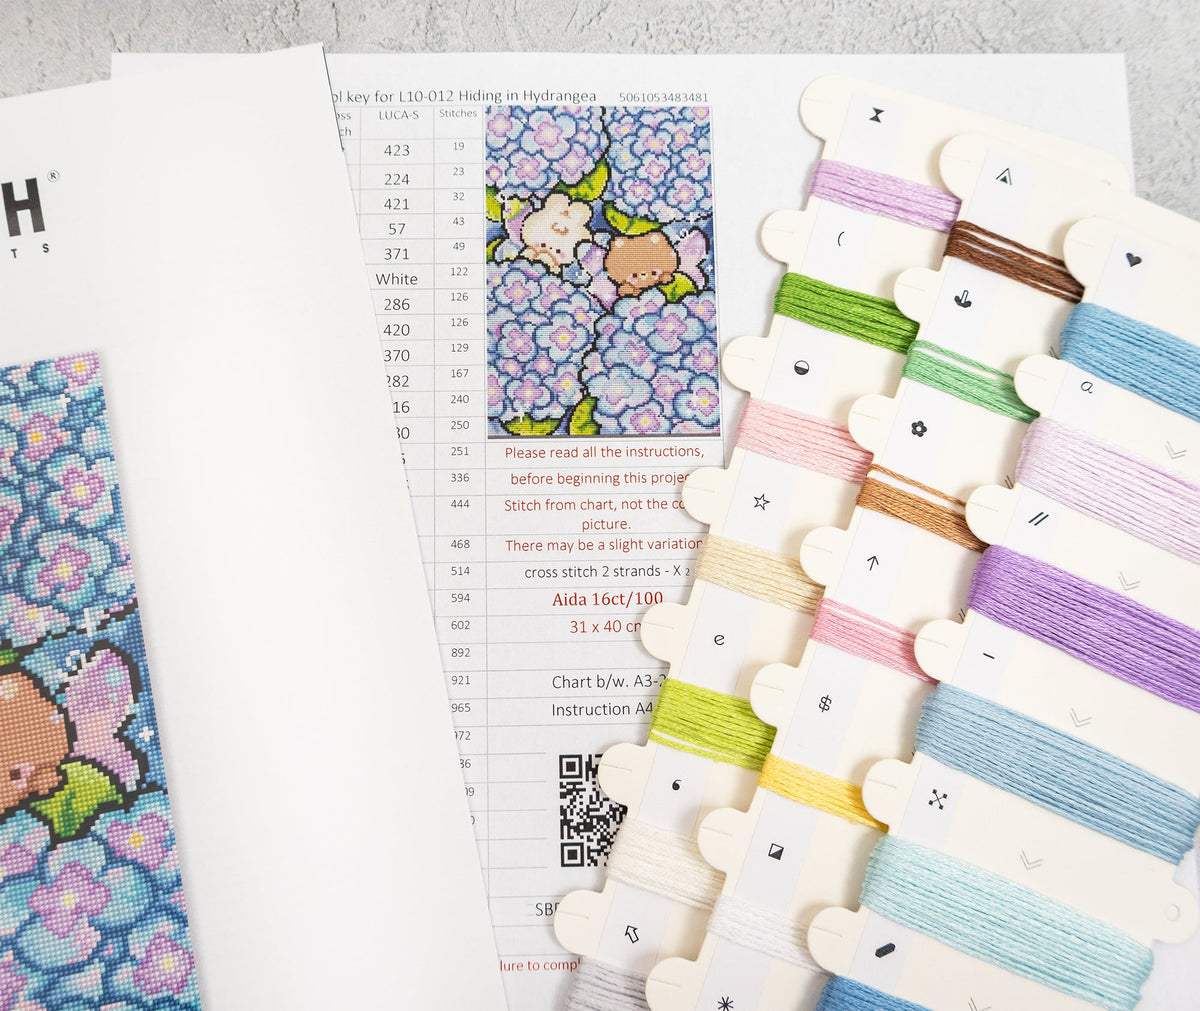 H®
T S
key for L10-012 Hiding in Hydrangea 5061053483481
LUCA-S Stitches
423 19
224 23
421 32
57 43
371 49
White 122
286 126
420 126
370 129
282 167
16 240
250
251
336
444
468
514
594
602
892
921
965
Please read all the instructions,
before beginning this
Stitch from chart, not the
picture.
There may be a slight
cross stitch 2 strands - X 2
Aida 16ct/100
31 x 40
Chart b/w.
Instruction A4
(
a
//
e
$